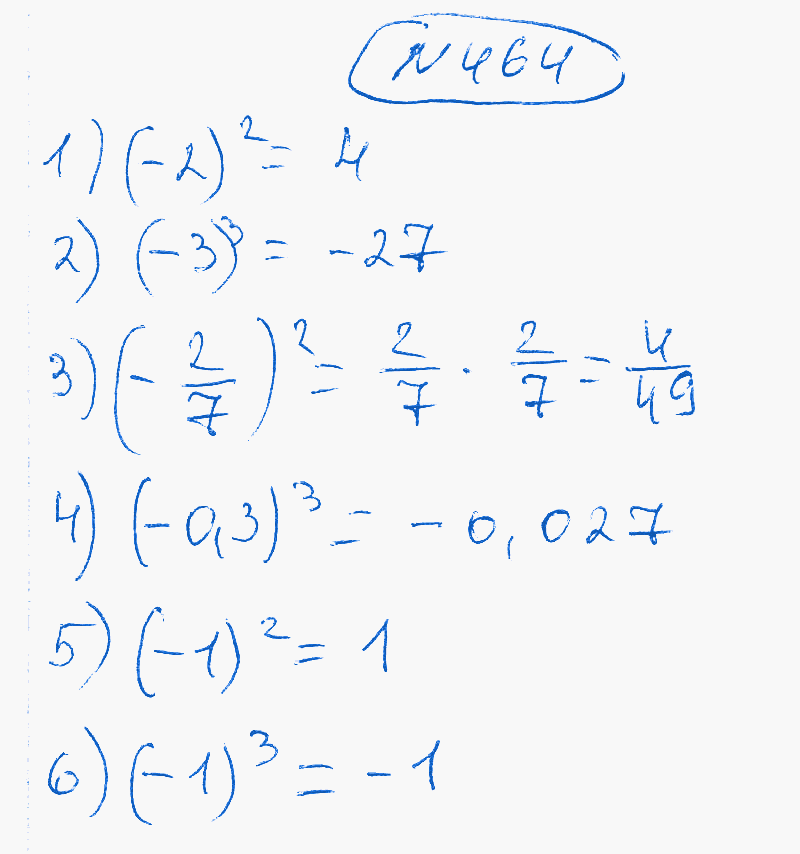 N 464
1) (-2)² = 4
2) (-3)³ = -27
3) (-2/7)² = 2/7 · 2/7 = 4/49
4) (-0,3)³ = -0,027
5) (-1)² = 1
6) (-1)³ = -1